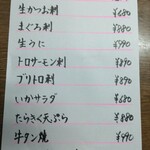 生かつお刺 ¥680
まぐろ刺 ¥880
生うに ¥990
トロサーモン刺 ¥890
ブリトロ刺 ¥890
いかサラダ ¥680
たらたく天ぷら ¥880
牛タン焼 ¥990